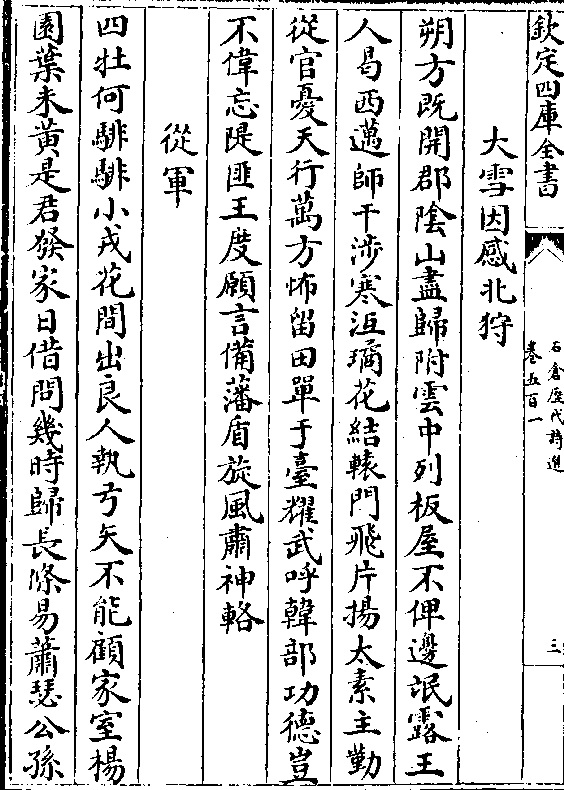 欽定四庫全書
石倉歷代詩選
卷五百一
三
大雪因感北狩
朔方既開郡陰山盡歸附雲中列板屋不俾邊氓露王
人曷西邁師干涉寒沍璚花結轅門飛片揚太素主勤
從官憂天行萬方怖留田單于臺耀武呼韓部功德豈
不偉忘隄匪王度願言備藩盾旋風肅神輅
從軍
四牡何騑騑小戎花間出良人執弓矢不能顧家室楊
園葉未黃是君發家日借問幾時歸長條易蕭瑟公孫